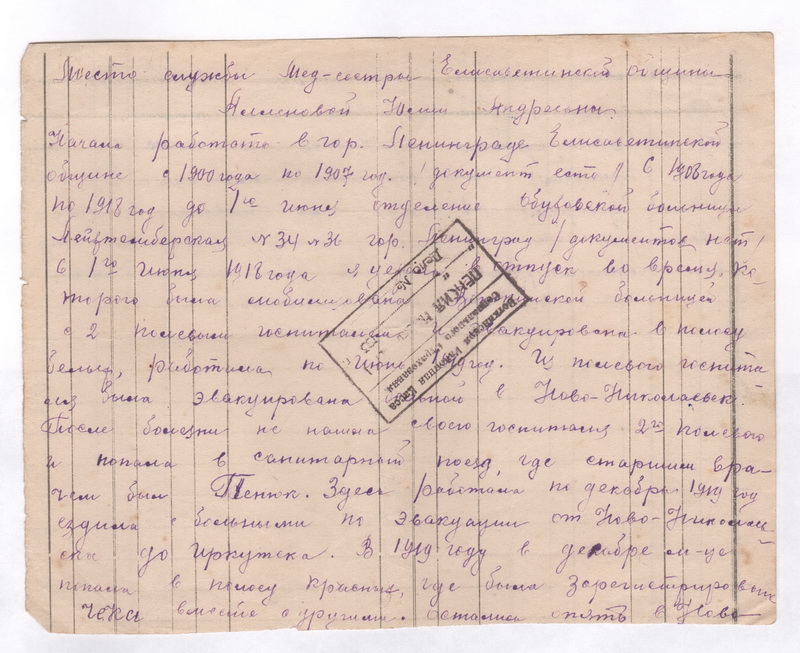 Место службы Мед-сестры Елисаветинской общины
Юлии Андреевны.
Начала работать в гор. Ленинграде Елисаветинской
общине с 1900 года по 1907 год. /документ есть/ С 1908 года
по 1918 год до 1го июня отделение Обуховской больницы
№ 34 № 36 гор. Ленинград /документов нет/
С 1го июня 1918 года я в отпуск во время, ко-
торого была мобилизована больницей
с 2 полевым госпиталем и эвакуирована в полосу
белых, работала по Июнь год. Из полевого госпита
ля была эвакуирована больной в Ново-Николаевск.
После болезни не нашла своего госпиталя 2го полевого
и попала в санитарный поезд, где старшим вра-
чем был Пенюк. Здесь работала по декабрь 1919 год
ездила с больными по эвакуации от Ново-Николаев
ска до Иркутска. В 1919 году в декабре м-це
попала в полосу красных, где была зарегистрирована
ЧеКа вместе с другими. Осталась опять в Ново
Воткинская Районная Касса
Социального Страхования
ПЕНСИЯ №
Дело №